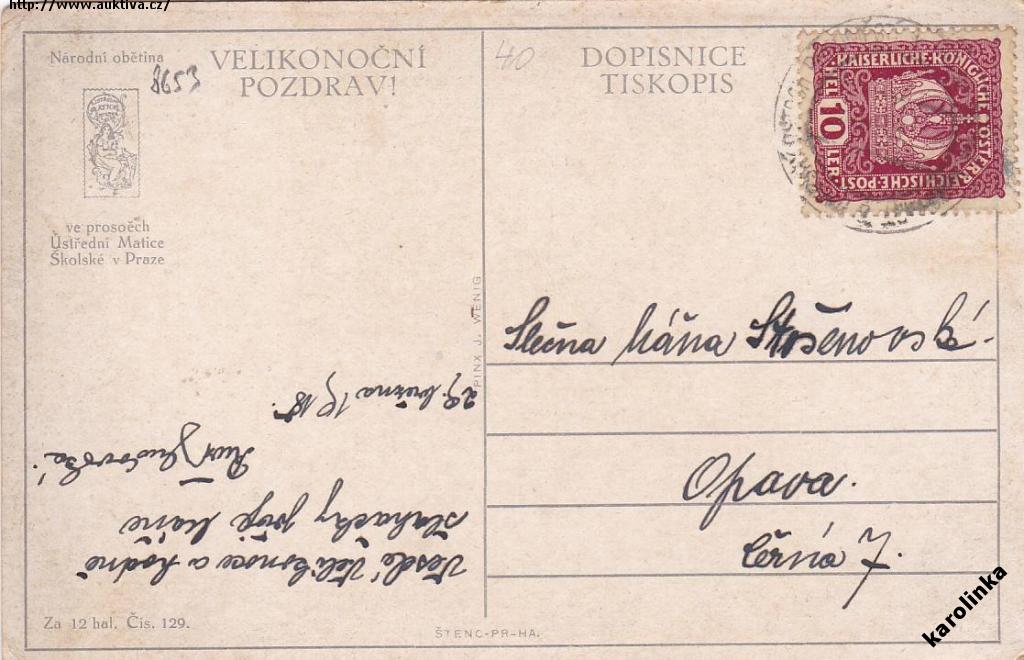 http://www.auktiva.cz/
Národní obětina
VELIKONOČNÍ
POZDRAV!
8653
ve prospěch
Ústřední Matice
Školské v Praze
40
DOPISNICE
TISKOPIS
KAISERLICHE·KÖNIGLICHE ÖSTERREICHISCHE·POST
10 HELLER
Slečna Máňa
Opava.
Černá 7.
Veselé Velikonoce a hodně
29. března 1918.
PINX J. WENIG
Za 12 hal. Čís. 129.
ŠTENC-PRAHA.
karolinka